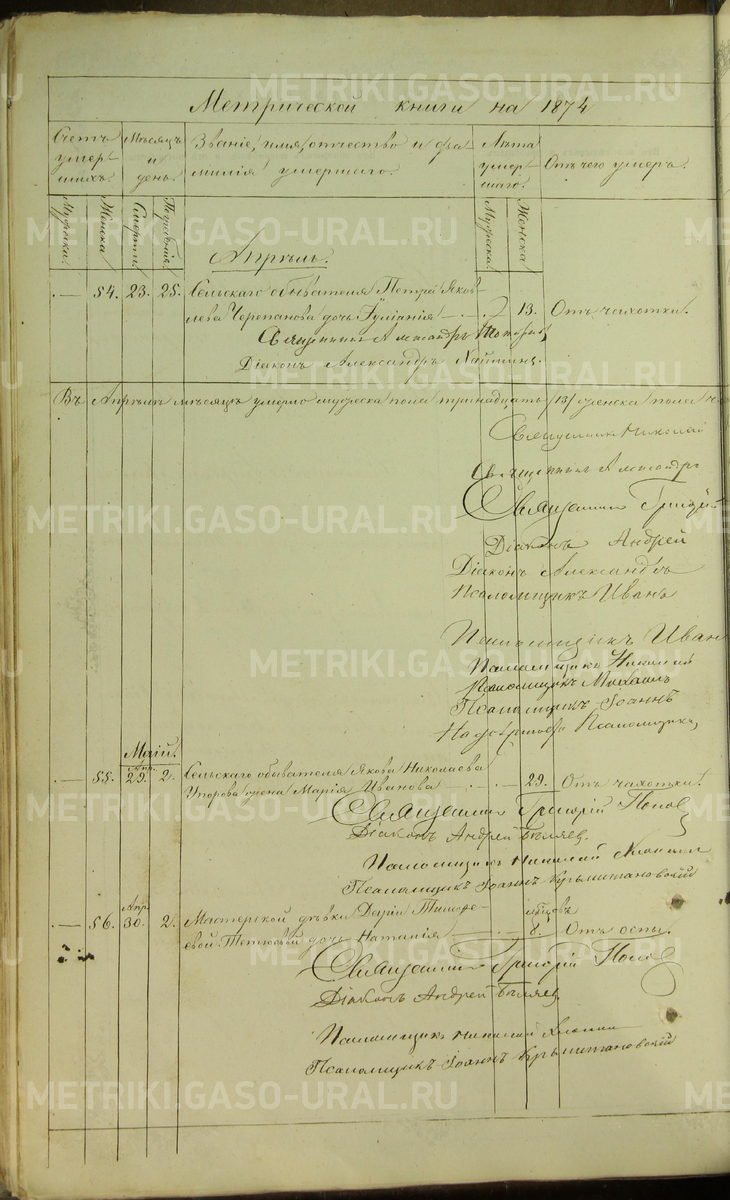 Метрической книги на 1874
Счетъ умершихъ.
Мѣсяцъ и день.
Званіе, имя, отчество и фамилія умершаго.
Лѣта умершаго.
Отъ чего умеръ.
Мужска.
Женска
Смерти.
Погребенія.
Мужска.
Женска
Апрѣль.
54. 23. 25. Сельскаго обывателя Петра Яков-
лева Черепанова дочь Іуліанія 13. Отъ чахотки.
Священникъ Александръ
Діаконъ Александръ
Въ Апрѣлѣ мѣсяцѣ умерло мужеска пола тринадцать /13/ женска пола
Священникъ Николай
Священникъ Александръ
Священникъ Григорій
Діаконъ Андрей
Діаконъ Александръ
Псаломщикъ Иванъ
Псаломщикъ Иван
Псаломщикъ Николай
Псаломщикъ Михаилъ
Псаломщикъ Іоаннъ
Псаломщика,
Май.
Апр.
55. 29. 2. Сельскаго обывателя Якова Николаева
Упорова жена Марія Иванова 29. Отъ чахотки.
Священникъ Григорій Попов
Діаконъ Андрей Бѣляев.
Псаломщикъ Николай
Псаломщикъ Іоаннъ Крымитановскій
Апр.
56. 30. 2. Мастерской дѣвки Даріи Тимофе-
евой Тетюевой дочь Наталія мѣсяцовъ 8. Отъ оспы.
Священникъ Григорій Попов
Діаконъ Андрей Бѣляев.
Псаломщикъ Николай
Псаломщикъ Іоаннъ Крымитановскій
METRIKI.GASO-URAL.RU